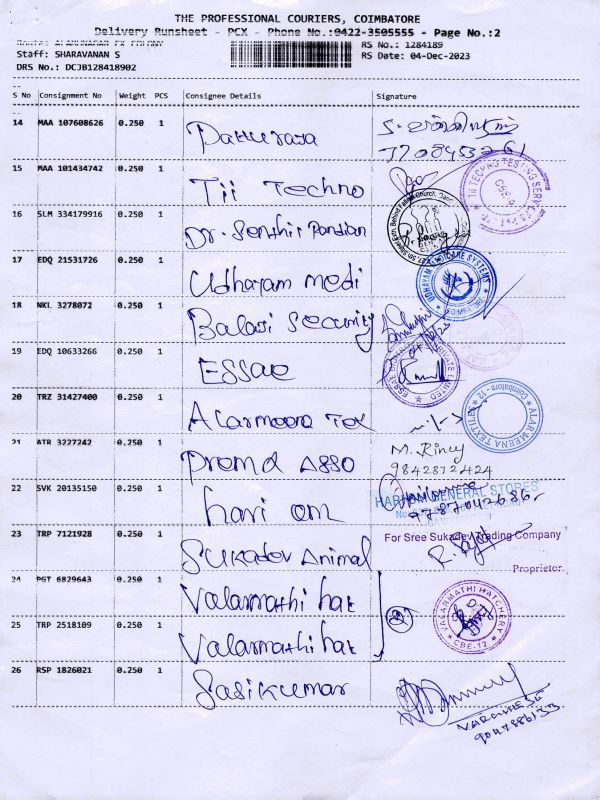 THE PROFESSIONAL COURIERS, COIMBATORE
Delivery Runsheet - PCX - Phone No.:0422-3505555 - Page No.:2
RS No.: 1284189
Staff: SHARAVANAN S
RS Date: 04-Dec-2023
DRS No.: DCJB128418902
S No Consignment No Weight PCS Consignee Details Signature
14 MAA 107608626 0.250 1
15 MAA 101434742 0.250 1 Tii Techno
TECHNO TESTING SERVICES
16 SLM 334179916 0.250 1 Dr. Senthil Pandian
17 EDQ 21531726 0.250 1 Udhayam medi
18 NKL 3278072 0.250 1 Balaji Security
19 EDQ 10633266 0.250 1 ESSae
PRIVATE LIMITED
20 TRZ 31427400 0.250 1 Alarmeena Tex
ALAR MEENA TEXTILES * Coimbatore - 12 *
21 ATR 3227242 0.250 1 Prema ASSO M. Rincy
9842872424
22 SVK 20135150 0.250 1 hari om
HARIOM GENERAL STORES
23 TRP 7121928 0.250 1 Sukadev Animal
For Sree Sukadev Trading Company
Proprietor
24 PGT 6829643 0.250 1 Valarmathi hat
25 TRP 2518109 0.250 1 Valarmathi hat
VALARMATHI HATCHERY * CBE-12 *
26 RSP 1826021 0.250 1 Sasikumar
9047886133